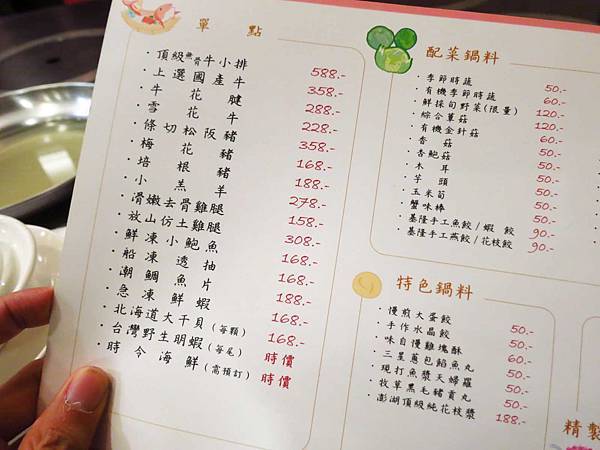 單 點
・頂級無骨牛小排 588.-
・上選國產牛 358.-
・牛花腱 288.-
・雪花牛 228.-
・條切松阪豬 358.-
・梅花豬 168.-
・培根豬 188.-
・小羔羊 278.-
・滑嫩去骨雞腿 158.-
・放山仿土雞腿 308.-
・鮮凍小鮑魚 168.-
・船凍透抽 168.-
・潮鯛魚片 188.-
・急凍鮮蝦 168.-
・北海道大干貝(每顆) 168.-
・台灣野生明蝦(每尾) 時價
・時令海鮮(需預訂) 時價
配菜鍋料
・季節時蔬 50.-
・有機季節時蔬 60.-
・鮮採旬野菜(限量) 120.-
・綜合蕈菇 120.-
・有機金針菇 60.-
・香菇 50.-
・杏鮑菇 50.-
・木耳 50.-
・芋頭 50.-
・玉米筍 50.-
・蟹味棒 50.-
・基隆手工魚餃/蝦餃 90.-
・基隆手工燕餃/花枝餃 90.-
特色鍋料
・慢煎大蛋餃 50.-
・手作水晶餃 50.-
・味自慢雞塊酥 60.-
・三星蔥包餡魚丸 50.-
・現打魚漿天婦羅 50.-
・牧草黑毛豬貢丸 50.-
・澎湖頂級純花枝漿 188.-
精製